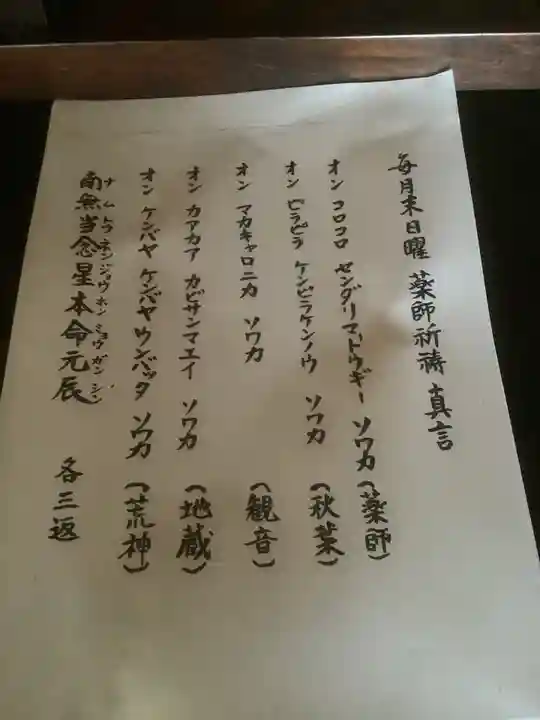 毎月末日曜 薬師祈祷 真言
オン コロコロ センダリマトウギー ソワカ (薬師)
オン ピラピラ ケンピラケンノウ ソワカ (秋葉)
オン マカキャロニカ ソワカ (観音)
オン カアカア カビサンマエイ ソワカ (地蔵)
オン ケンバヤ ケンバヤ ウンバッタ ソワカ (荒神)
ナムトウネンジョウホンミョウガンシン
南無当念星本命元辰 各三返